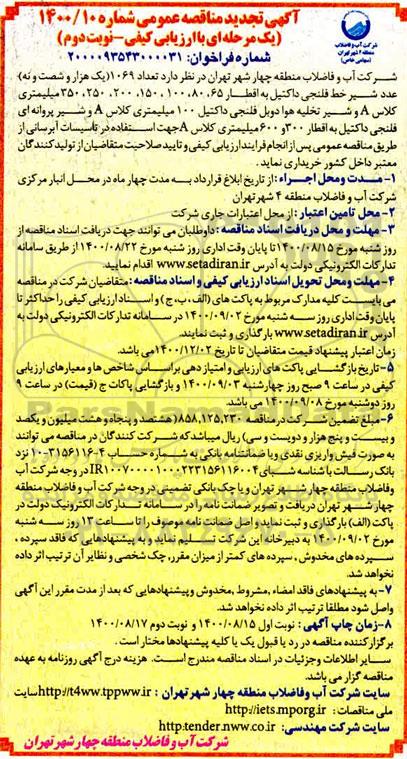 آگهی تجدید مناقصه عمومی شماره ۱۴۰۰/۱۰
(یک مرحله ای با ارزیابی کیفی - نوبت دوم)
شماره فراخوان: ۲۰۰۰۰۹۳۵۴۳۰۰۰۰۳۱
شرکت آب و فاضلاب
منطقه ۴ شهر تهران
(سهامی خاص)
شرکت آب و فاضلاب منطقه چهار شهر تهران در نظر دارد تعداد ۱۰۶۹ (یک هزار و شصت و نه)
عدد شیر خط فلنجی داکتیل به اقطار ۶۵، ۸۰، ۱۰۰، ۱۵۰، ۲۰۰، ۲۵۰، ۳۵۰ میلیمتری
کلاس A و شیر تخلیه هوا دوبل فلنجی داکتیل ۱۰۰ میلیمتری کلاس A و شیر پروانه ای
فلنجی داکتیل به اقطار ۳۰۰ و ۶۰۰ میلیمتری کلاس A جهت استفاده در تاسیسات آبرسانی از
طریق مناقصه عمومی پس از انجام فرایند ارزیابی کیفی و تایید صلاحیت متقاضیان از تولیدکنندگان
معتبر داخل کشور خریداری نماید.
۱- مدت و محل اجراء: از تاریخ ابلاغ قرارداد به مدت چهار ماه در محل انبار مرکزی
شرکت آب و فاضلاب منطقه ۴ شهر تهران
۲- محل تامین اعتبار: از محل اعتبارات جاری شرکت
۳- مهلت و محل دریافت اسناد مناقصه: داوطلبان می توانند جهت دریافت اسناد مناقصه از
روز شنبه مورخ ۱۴۰۰/۰۸/۱۵ تا پایان وقت اداری روز شنبه مورخ ۱۴۰۰/۰۸/۲۲ از طریق سامانه
تدارکات الکترونیکی دولت به آدرس www.setadiran.ir اقدام نمایید.
۴- مهلت و محل تحویل اسناد ارزیابی کیفی و اسناد مناقصه: متقاضیان شرکت در مناقصه
می بایست کلیه مدارک مربوط به پاکت های (الف، ب، ج) و اسناد ارزیابی کیفی را حداکثر تا
پایان وقت اداری روز سه شنبه مورخ ۱۴۰۰/۰۹/۰۲ در سامانه تدارکات الکترونیکی دولت به
آدرس www.setadiran.ir بارگذاری و ثبت نمایند.
زمان اعتبار پیشنهاد قیمت متقاضیان تا تاریخ ۱۴۰۰/۱۲/۰۲ می باشد.
۵- تاریخ بازگشایی پاکت های ارزیابی و امتیاز دهی براساس شاخص ها و معیارهای ارزیابی
کیفی در ساعت ۹ صبح روز چهارشنبه ۱۴۰۰/۰۹/۰۳ و بازگشایی پاکات ج (قیمت) در ساعت ۹
روز دوشنبه مورخ ۱۴۰۰/۰۹/۰۸ می باشد.
۶- مبلغ تضمین شرکت در مناقصه ۸۵۸,۱۲۵,۲۳۰ (هشتصد و پنجاه و هشت میلیون و یکصد
و بیست و پنج هزار و دویست و سی) ریال میباشد که شرکت کنندگان در مناقصه می توانند
به صورت فیش واریزی نقدی و یا ضمانتنامه بانکی به شماره حساب ۴-۳۱۵۶۱۱۶-۱۰ نزد
بانک رسالت با شناسه شبای IR۱۰۰۷۰۰۰۰۱۰۰۰۲۲۳۱۵۶۱۱۶۰۰۴ در وجه شرکت آب
وفاضلاب منطقه چهار شهر تهران و یا چک بانکی تضمینی در وجه شرکت آب و فاضلاب منطقه
چهار شهر تهران دریافت و تصویر ضمانت نامه را در سامانه تدارکات الکترونیک دولت در
پاکت (الف) بارگذاری و ثبت نماید و اصل ضمانت نامه موصوف را تا ساعت ۱۳ روز سه شنبه
مورخ ۱۴۰۰/۰۹/۰۲ به دبیرخانه این شرکت تسلیم نماید و به پیشنهادهایی که فاقد سپرده،
سپرده های مخدوش، سپرده های کمتر از میزان مقرر، چک شخصی و نظایر آن ترتیب اثر داده
نخواهد شد.
۷- به پیشنهادهای فاقد امضاء، مشروط، مخدوش و پیشنهادهایی که بعد از مدت مقرر این آگهی
واصل شود مطلقا ترتیب اثر داده نخواهد شد.
۸- زمان چاپ آگهی: نوبت اول ۱۴۰۰/۰۸/۱۵ و نوبت دوم ۱۴۰۰/۰۸/۱۷
برگزارکننده مناقصه در رد یا قبول یک یا کلیه پیشنهادها مختار است.
سایر اطلاعات و جزئیات در اسناد مناقصه مندرج است. هزینه درج آگهی روزنامه به عهده
مناقصه گزار می باشد.
سایت شرکت آب و فاضلاب منطقه چهار شهر تهران: http://t4ww.tppww.ir سایت
ملی مناقصات: http://iets.mporg.ir
سایت شرکت مهندسی: http:tender.nww.co.ir
شرکت آب و فاضلاب منطقه چهار شهر تهران